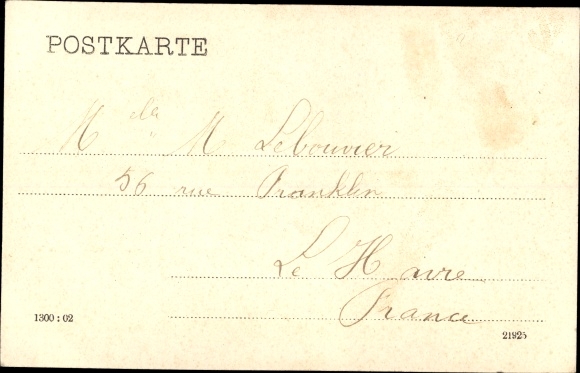 POSTKARTE
Mlle M Lebouvier
56 rue Franklin
Le Havre
France
1300 : 02
21925